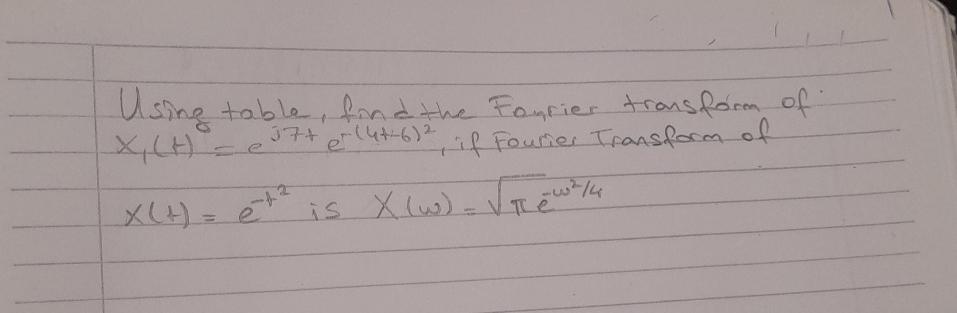 Using table, find the Fourier transform of
x₁(t) = e^{j7t} e^{-(4t-6)²}, if Fourier Transform of
x(t) = e^{-t²} is X(ω) = √π e^{-ω²/4}